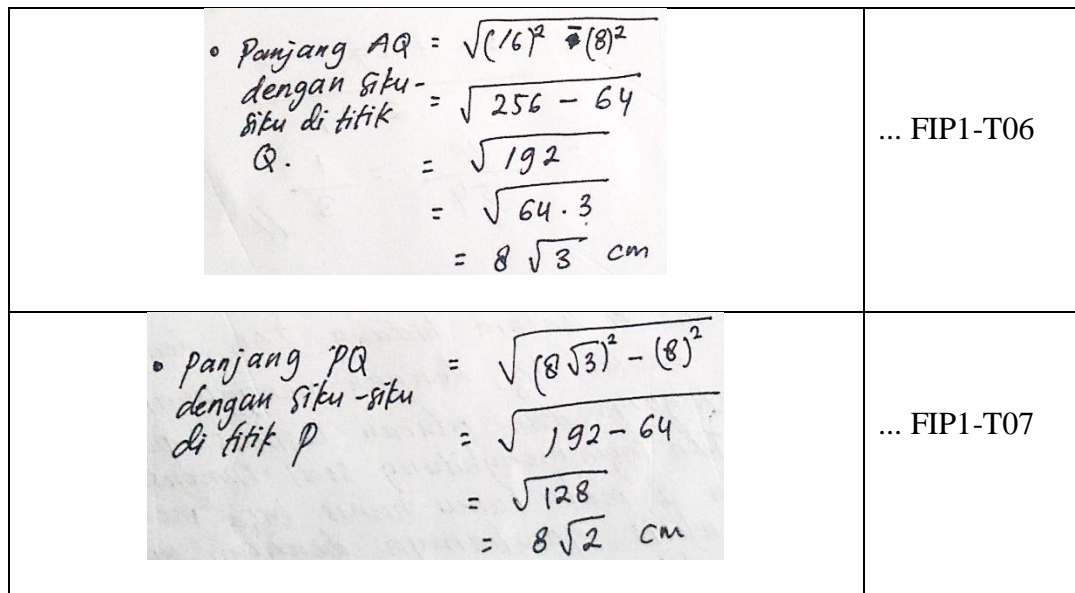 • Panjang AQ = √(16)² - (8)²
dengan siku-
siku di titik
Q.
= √256 - 64
= √192
= √64 . 3
= 8√3 cm
... FIP1-T06
• Panjang PQ = √(8√3)² - (8)²
dengan siku-siku
di titik P
= √192 - 64
= √128
= 8√2 cm
... FIP1-T07